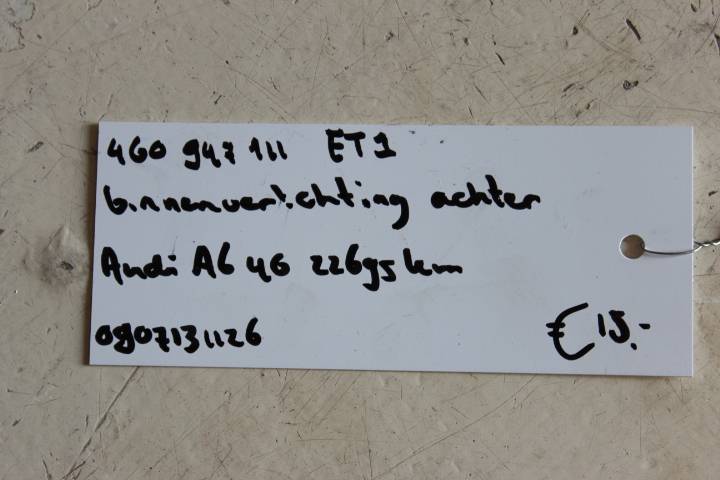 4G0 947 111 ET1
binnenverlichting achter
Audi A6 4G 22695 km
0907131126 €15,-